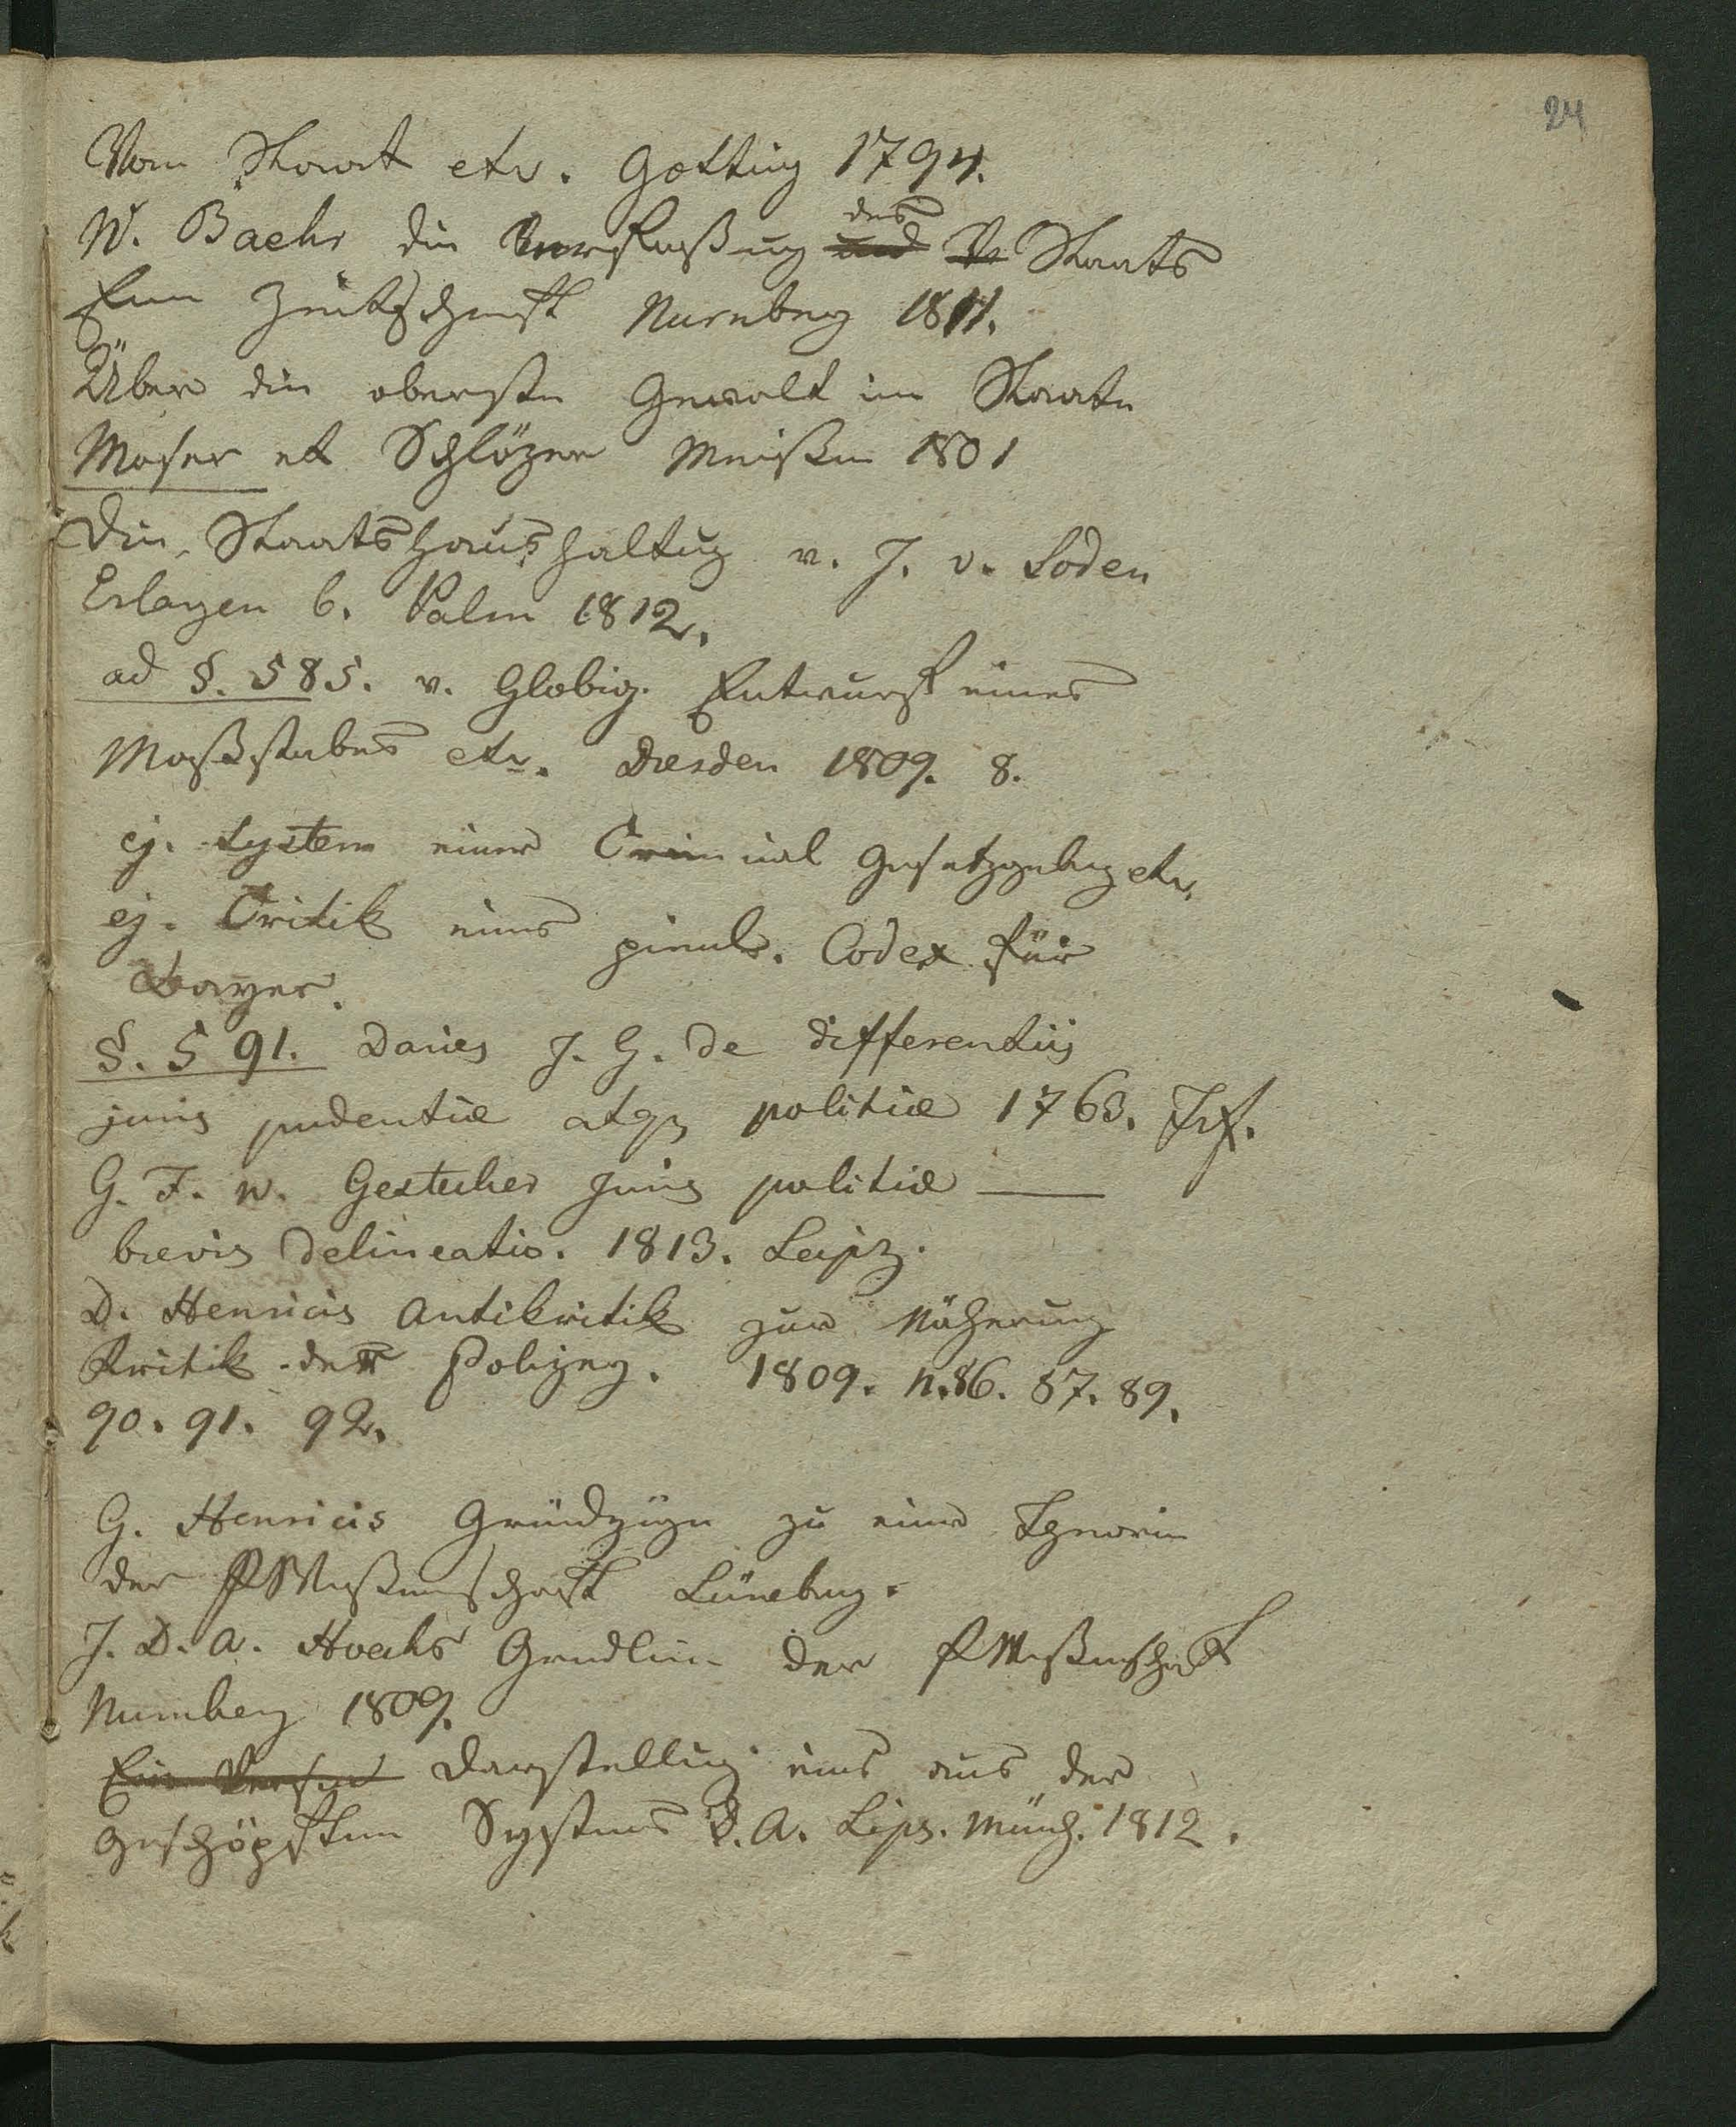 24
Vom Staat etc. Gotting 1794.
W. Baehr die Verfaßung des Staats
Eine Zeitschrift Nurnberg 1811.
Über die oberste Gewalt im Staate
Moser et Schlözer Meißen 1801
Die Staatshaushaltung v. J. v. Soden
Erlangen b. Palm 1812.
ad §. 585. v. Globig. Entwurf eines
Maßstabes etc. Dresden 1809. 8.
ej. System einer Criminal Gesetzgebung etc.
ej. Critik eines peinl. Codex für
Bayer.
§. 591. Daries J. G. de differentiis
juris prudentiæ atq politiæ 1763. Frf.
G. F. W. Juris politiæ —
brevis delineatio. 1813. Leipz.
D. Henricis Antikritik zur Näherung
Kritik der Polizey. 1809. n. 86. 87. 89.
90. 91. 92.
G. Henricis Grundzüge zu einer Theorie
der PWißenschaft Lüneburg.
J. D. A. Hoecks Grundlin. der PWißenschaft
Nurnberg 1809.
Darstellung eines aus der
geschöpften Systemes D. A. Lips. Münch. 1812.